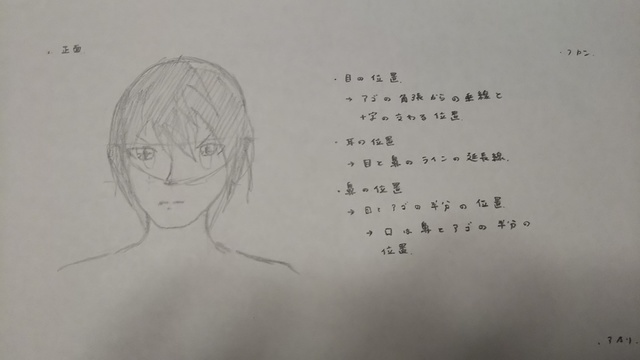 ・正面
・目の位置
→アゴの角張からの垂線と
十字の交わる位置
・耳の位置
→目と鼻のラインの延長線.
・鼻の位置
→目とアゴの半分の位置
→口は鼻とアゴの半分の
位置.